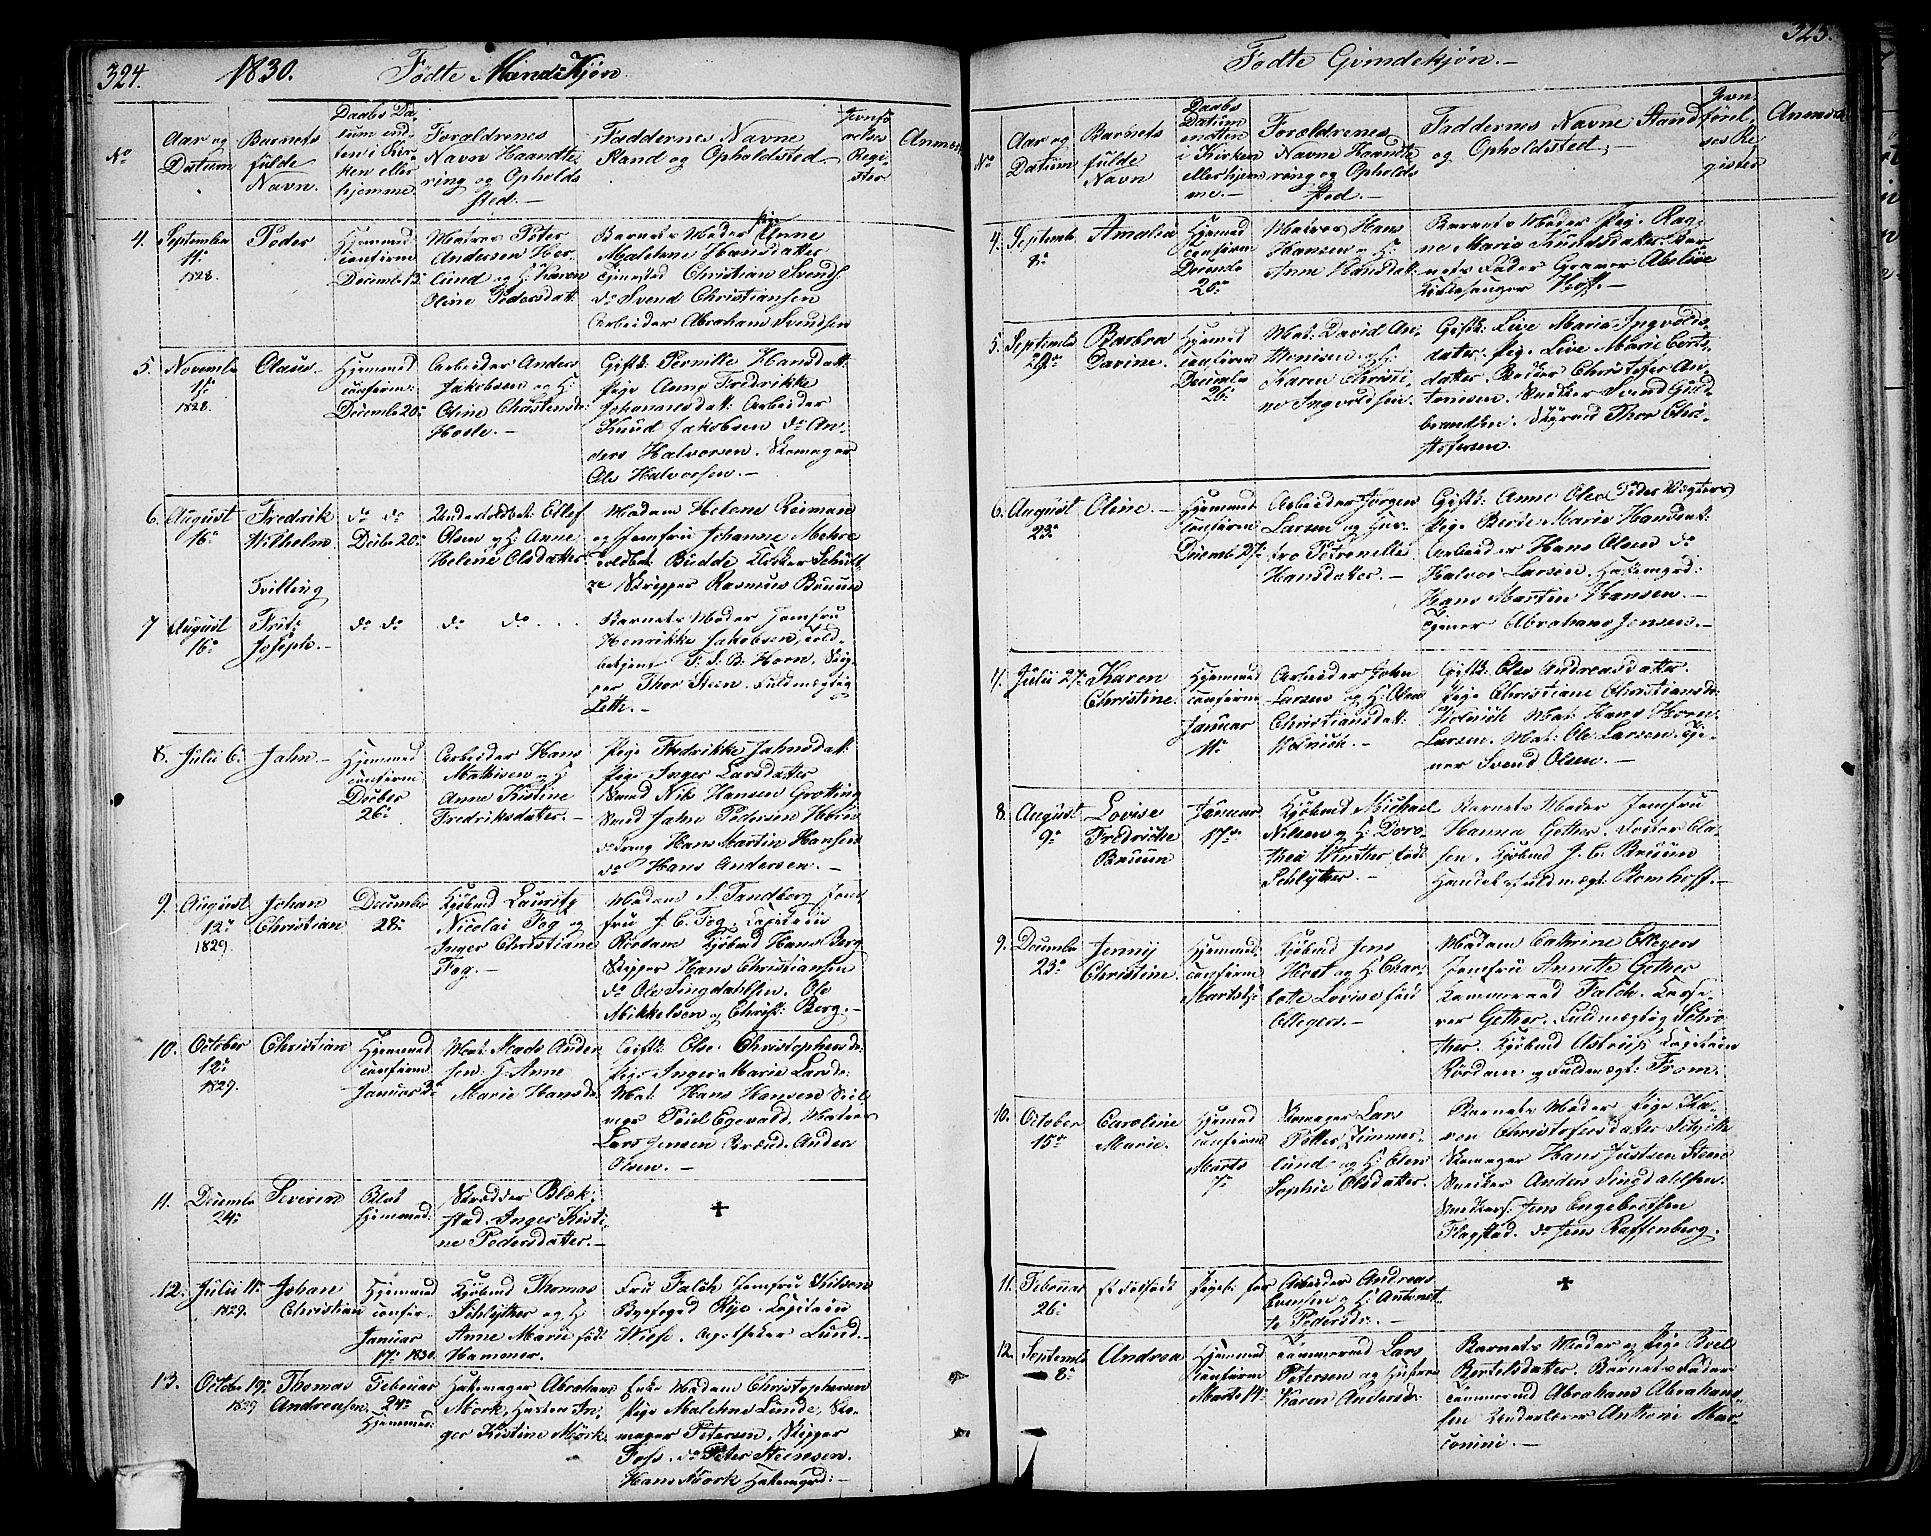 324.
1830.
Födte Mandkjön.
No
Aar og
Datum
Barnets
fulde
Navn.
Daabs Da-
tum en-
ten i Kir-
ken eller
hjemme.
Forældrenes
Navn Haandte
ring og Opholds
sted.
Faddernes Navne
Stand og Opholdsted
Regi-
ster
4.
September
11.
1828.
Peder
Hjemmed
confirm
Decembr 13
Matros Peter
Andersen
Oline Pedersdatt:
Barnets Moder Pige Anne
Malehne Hansdatter
Tjenested Christian Svends
do Svend Christiansen
Arbeider Abraham Svendsen
5.
Novembr
1.
1828.
Olaus
Hjemmed
confirm:
December 20
Arbeider Anders
Jakobsen og H:
Oline Christensdr:
Hoele.
Giftk: Pernille Hansdatt:
Pige Anne Fredrikke
Johannesdatt: Arbeider
Knud Jakobsen do An-
ders Halvorsen. Skomager
Ole Halvorsen.
6.
August
16
Fredrik
Wilhelm
Tvilling
do do
Decbr 20
Undertoldbet: Ellef
Olsen og H: Anne
Helene Olsdatter
Madam Helene Reiman
og Jomfru Johanne
toldbet: Budde Schult
ze Skipper Rasmus Bruun
7
August
16
Frits
Joseph
do do
do do
Barnets Moder Jomfru
Henrikke Jakobsen, Told-
betjent T. S. B. Horn, Skip-
per Thor Steen. Fuldmægtig
Lette.
8.
Julii 6
Jahn
Hjemmed
confirm
Decbr
26
Arbeider Hans
Mathisen og H
Anne Kistine
Fredriksdatter.
Pige Fredrikke Jahnsdatt:
Pige Inger Larsdatter
Smed Nils Hansen
Smed Jahn Pedersen
Hans Martin Hansen
do Hans Andersen.
9.
August
12
1829.
Johan
Christian
December
28
Kjöbmd Lauritz
Nicolai Fog og
Inger Christiane
Fog.
Madam S. Tandberg Jom-
fru J. C. Fog, Capitain
Rördam Kjöbmd Hans Berg
Skipper Hans Christiansen
do Ole Ingdahlsen. Ole
Mikkelsen og Christ: Berg.
10.
October
12
1829.
Christian
Hjemmed
confirm
Januar 3
Mat: Mads Ander-
sen H: Anne
Marie Hansdr
Giftk: Else Christophersdr
Pige Inger Marie Larsdr:
Mat: Hans Hansen
Poul Egevald, Matros
Lars Jensen Anders
Olsen.
11.
Decembr
24
Severin
Blot
hjemmed:
Skrædder Blek-
stad. Inger Kisti-
ne Pedersdatter.
12.
Julii 11
1829.
Johan
Christian
Hjemmed
confir-
Januar
17 1830.
Kjöbmd Thomas
Schlÿtter og H
Anne Marie föd
Hammer.
Fru Falch Jomfru Nilson
Byefoged Rye. Capitain
Wiese. Apotheker Lund.
13.
October 19
1829
Thomas
Andreasen
Februar
24
Hjemmed:
Hakemager Abraham
Mörk, Hustru In-
ger Kistine Mörk.
Enke Madam Christophersen
Pige Malehne Lunde, Sko-
mager Petersen, Skipper
Foss, do Peter Steensen.
Hans Mörk
325.
Födte Qvindekjön.
No
Aar og
Datum
Barnets
fulde
Navn
Daabs
Datum
enten
i Kirken
eller hjem
me.
Forældrenes
Navne Haandte
ring og Opholds
sted.
Faddernes Navne Stand
og Opholdsted,
Jevn-
förel-
ses Re
gister
4.
Septembr
8
Amalia
Hjemmed
confirm
Decembr
20
Matros Hans
Hansen og H:
Anne Hansdatt:
Barnets Moder Pige Rag-
ne Marie Knudsdatter. Bar-
nets Fader
Kirkesanger Hoff.
5.
Septembr
29
Barbra
Davine.
Hjemmed
confirm
December
26
Mat: David An-
thonisen og H:
Karen Christi-
ne Ingvoldsen.
Giftk: Live Maria Ingvolds-
datter. Pige Live Marie Berts-
datter. Bödker Christofer An-
tonisen. Snedker Svend Guld-
brandsen. Styrmd Thor Chri-
stofersen.
6.
August
23
Oline
Hjemmed
confirm
Decemb 27
Arbeider Jörgen
Larsen og Hus-
tro Petronelle
Hansdatter.
Giftk: Anne Olea Peder
Pige Berte Marie Hansdat:
Arbeider Hans Olsen do
Halvor Larsen.
Hans Martin Hansen.
Tjener Abraham Jensen.
Julii 27
Karen
Christine.
Hjemmed
confirm
Januar
11
Arbeider John
Larsen og H: Olea
Christiansdatt:
Giftk: Olea Andreasdatter
Pige Christiane Christiansdr:
Mat: Hans Horn
Larsen. Mat: Ole Larsen. Tje-
ner Svend Olsen.
8.
August
9
Lovise
Fredrikke
Bruun
Januar
17
Kjöbmd Michael
Nilsen og H: Doro-
thea Winther föd
Schlÿtter.
Barnets Moder Jomfru
Hanna Gether. Toster Cla-
sen. Kjöbmd J. C. Bruun
Handelsfuldmægt: Bomhoff.
9.
Decembr
23
Jenny
Christine.
Hjemmed
confirm
Kjöbmd Jens
Höst og H: Char-
lotte Lovise föd
Ellegers.
Madam Cathrine Ellegers
Jomfru Annette Gether
Kammerraad Falch. Casse-
rer Gether. Fuldmægtig Schrö
ther. Kjöbmd Astrup Capitain
Rördam og Fuldmægt: From.
10.
October
15
Caroline
Marie.
Hjemmed
confirm
Marts
7
Skomager Lars
Potter Simmer-
lund og H: Elen
Sophie Olsdatter.
Barnets Moder Pige Ka-
ren Christofersdatter
Skomager Hans Justsen Steen
Snedker Anders Lingdallsen
Jens Engebretsen
Flagstad. do Jens Raffenberg.
11.
Februar
26
et dödfödt
for
Arbeider Andreas
Evensen og H: Antonet-
te Pedersdr.
12.
Septembr
8
Andrea
Hjemmed
confirm
Marts 14
Tömmermd Lars
Petersen og Hustro
Karen Andersdr.
Barnets Moder og Pige Boel
Bertelsdatter. Barnets Fader
Tömmermd Abraham Abraham-
sen Underlærer Anthoni Mar-
conini.